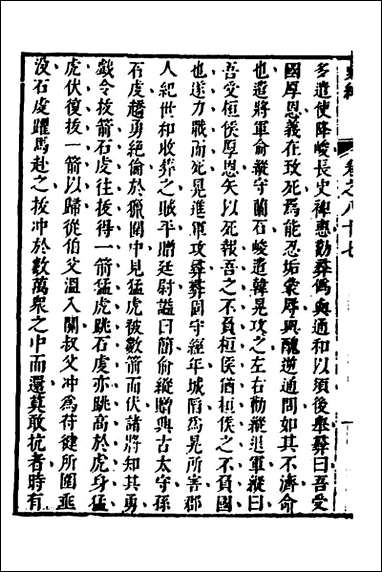 卷之八十七
多遣使降峻長史裨惠勸彝僞與通和以須後舉彝曰吾受
國厚恩義在致死焉能忍垢蒙辱與醜逆通問如其不濟命
也遣將軍俞縱守蘭石峻遣韓晃攻之左右勸縱退軍縱曰
吾受桓侯厚恩矢以死報吾之不負桓侯猶桓侯之不負國
也遂力戰而死晃進軍攻彝彝固守經年城陷爲晃所害郡
人紀世和收葬之賊平贈廷尉謚曰簡俞縱贈興古太守孫
石虔趫勇絶倫於獵圍中見猛虎被數箭而伏諸將知其勇
戲令拔箭石虔往拔得一箭猛虎跳石虔亦跳高於虎身猛
虎伏復拔一箭以歸從伯父溫入關叔父冲爲苻健所圍垂
沒石虔躍馬赴之拔冲於數萬衆之中而還莫敢抗者時有